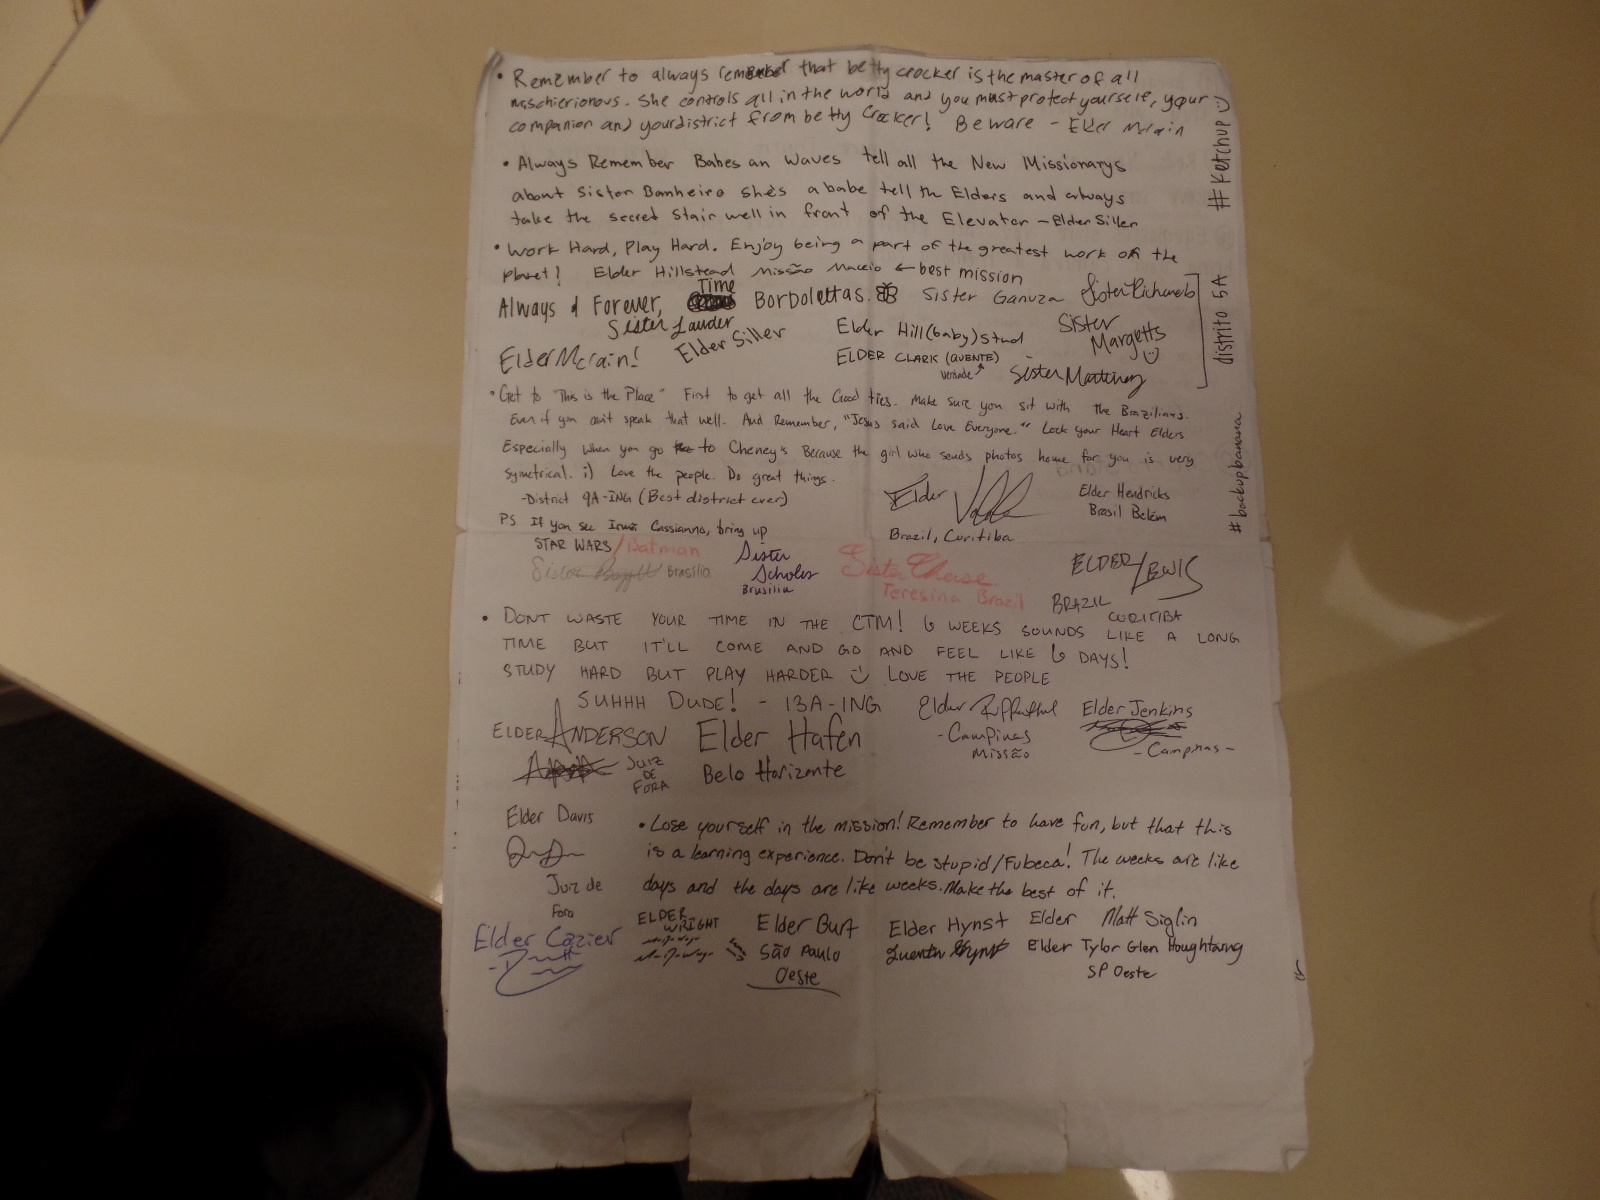 • Remember to always remember that betty crocker is the master of all
mischierionous. She controls all in the world and you must protect yourself, your
companion and your district from betty Crocker! Beware - Elder Mcrain
#Ketchup
• Always Remember Babes an Waves tell all the New Missionarys
about Sister Banheiro she's a babe tell th Elders and always
take the secret Stair well in front of the Elevator - Elder Siller
• Work Hard, Play Hard. Enjoy being a part of the greatest work on the
planet! Elder Hillstead Missão Maceio ← best mission
Always & Forever, Time Borbolettas. Sister Ganuza Sister Richards
Sister Lauder
Elder Mcrain! Elder Siller
Elder Hill(baby)stud Sister Margetts
ELDER CLARK (QUENTE)
verdade
Sister Martinez
distrito 5A
• Get to "This is the Place" First to get all the Good ties. Make sure you sit with the Brazilians.
Even if you can't speak that well. And Remember, "Jesus said Love Everyone." Lock your Heart Elders
Especially when you go to Cheney's Because the girl who sends photos home for you is very
symetrical. ;) Love the people. Do great things.
- District 9A-ING (Best district ever)
#backupbanana
Elder
Brazil, Curitiba
Elder Hendricks
Brasil Belém
PS If you see Irmão Cassianno, bring up
STAR WARS/Batman
Sister Brasília
Sister
Scholes
Brasilia
Sister Chase
Teresina Brazil
ELDER LEWIS
BRAZIL
CURITIBA
• DONT WASTE YOUR TIME IN THE CTM! 6 WEEKS SOUNDS LIKE A LONG
TIME BUT IT'LL COME AND GO AND FEEL LIKE 6 DAYS!
STUDY HARD BUT PLAY HARDER LOVE THE PEOPLE
SUHHH DUDE! - 13A-ING
ELDER ANDERSON
JUIZ
DE
FORA
Elder Hafen
Belo Horizonte
Elder
- Campinas
Missão
Elder Jenkins
- Campinas -
Elder Davis
Juiz de
Fora
• Lose yourself in the mission! Remember to have fun, but that this
is a learning experience. Don't be stupid/Fubeca! The weeks are like
days and the days are like weeks. Make the best of it.
Elder Cazier
ELDER
WRIGHT
Elder Burt
São Paulo
Oeste
Elder Hynst
Quentin Hynst
Elder Matt Siglin
Elder Tylor Glen Houghtwng
SP Oeste